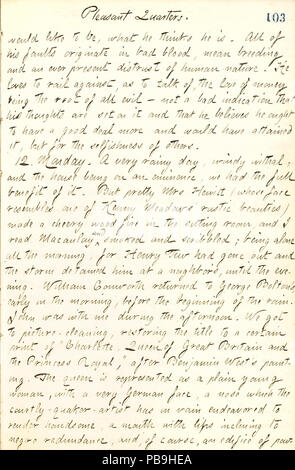 Pleasant Quarters.
103
would like to be, what he thinks he is. All of
his faults originate in bad blood, mean breeding
and an ever present distrust of human nature. He
loves to rail against, as to talk of, the love of money
being the root of all evil — not a bad indication that
his thoughts are set on it and that he believes he ought
to have a good deal more and would have attained
it, but for the selfishness of others.
12. Monday. A very rainy day, windy withal,
and the house being on an eminence, we had the full
benefit of it. But pretty Mrs Hewit (whose face
resembles one of Kenny Meadows rustic beauties)
made a cheery wood fire in the sitting room, and I
read Macaulay, smoked and scribbled; being alone
all the morning, for Henry Hew had gone out and
the storm detained him at a neighbors, until the eve-
ning. William Conworth returned to George Bolton's
early in the morning, before the beginning of the rain.
John was with me during the afternoon. We got
to picture-cleaning, restoring the title to a certain
print of "Charlotte Queen of Great Britain and
the Princess Royal," after Benjamin West's paint-
ing. The queen is represented as a plain young
woman, with a very German face, a nose which the
courtly-quaker-artist has in vain endeavored to
render handsome, a mouth with lips inclining to
negro redundance, and, of course, an edifice of pow-
alamy
Image ID: PB9HEA
www.alamy.com